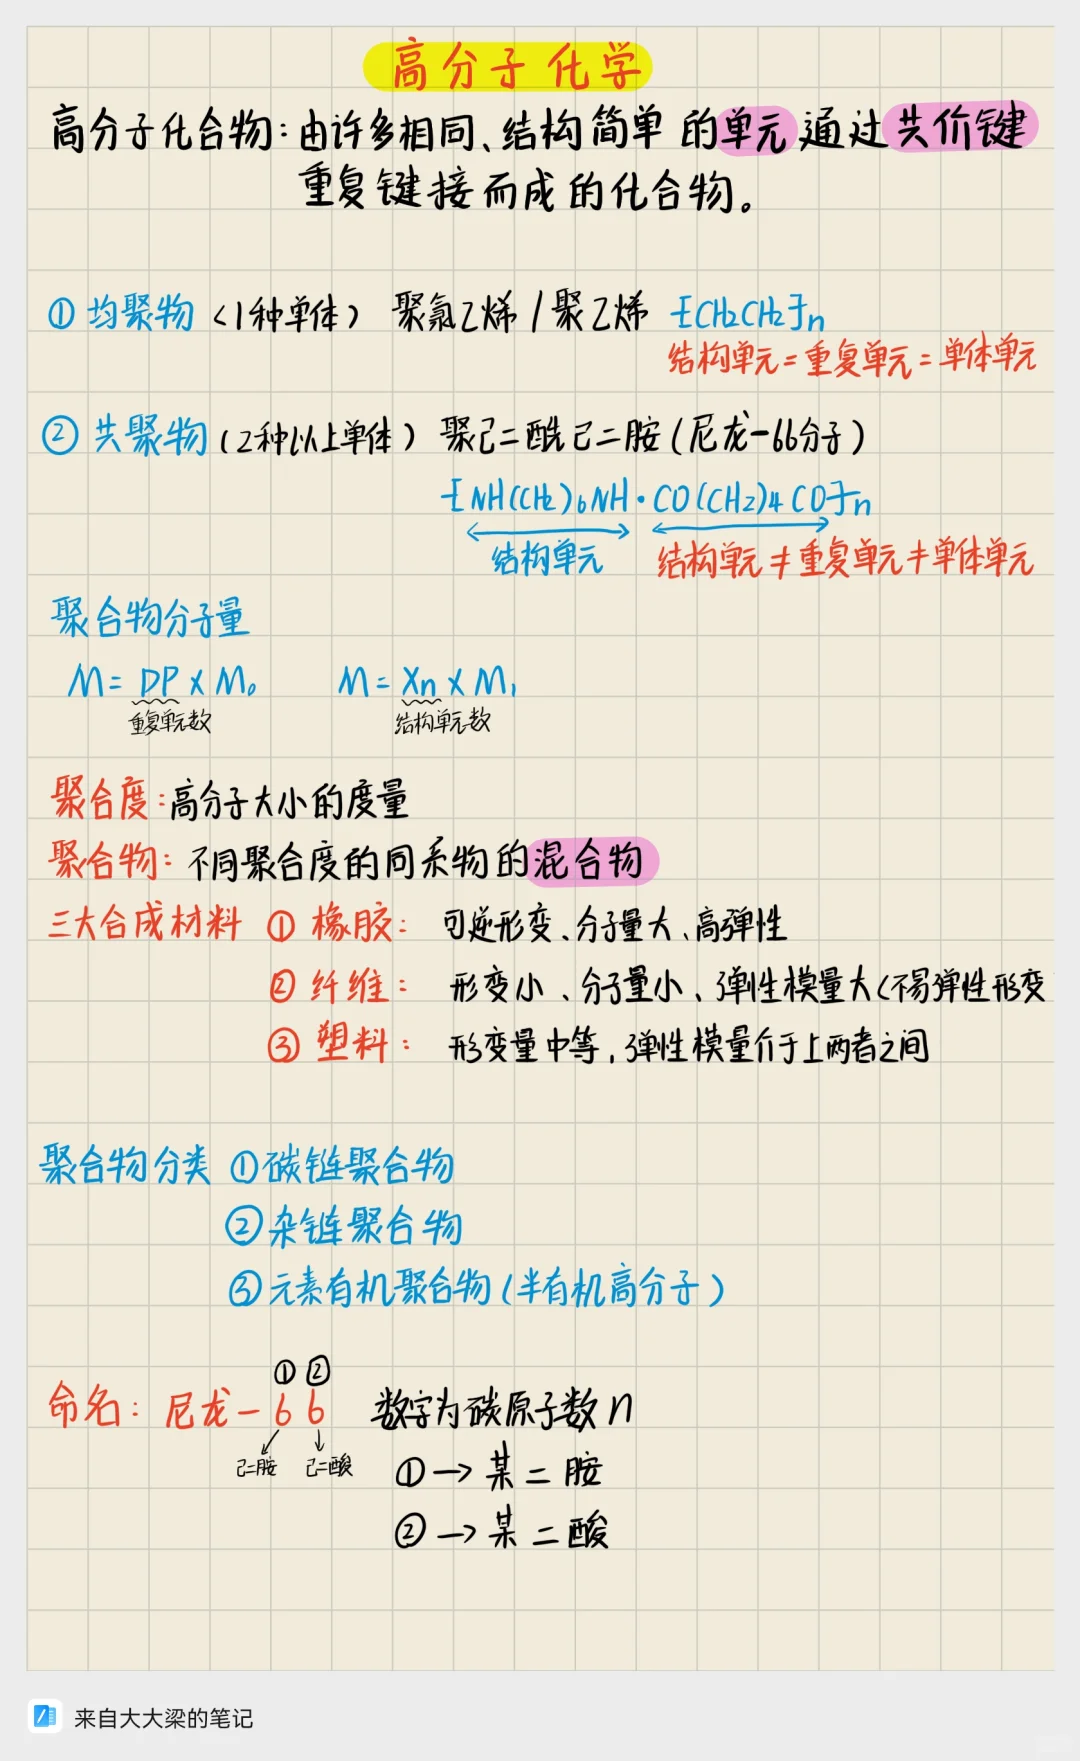 高分子化学
高分子化合物:由许多相同、结构简单的单元通过共价键
重复键接而成的化合物。
① 均聚物(1种单体) 聚氯乙烯/聚乙烯 -[CH2CH2]-n
结构单元=重复单元=单体单元
② 共聚物(2种以上单体) 聚己二酰己二胺(尼龙-66分子)
-[NH(CH2)6NH·CO(CH2)4CO]-n
结构单元 结构单元≠重复单元≠单体单元
聚合物分子量
M=DP×M0 M=Xn×M1
重复单元数 结构单元数
聚合度:高分子大小的度量
聚合物:不同聚合度的同系物的混合物
三大合成材料 ① 橡胶: 可逆形变、分子量大、高弹性
② 纤维: 形变小、分子量小、弹性模量大(不易弹性形变
③ 塑料: 形变量中等,弹性模量介于上两者之间
聚合物分类 ①碳链聚合物
②杂链聚合物
③元素有机聚合物(半有机高分子)
① ②
命名:尼龙-66 数字为碳原子数n
己二胺 己二酸 ①→某二胺
②→某二酸
来自大大梁的笔记